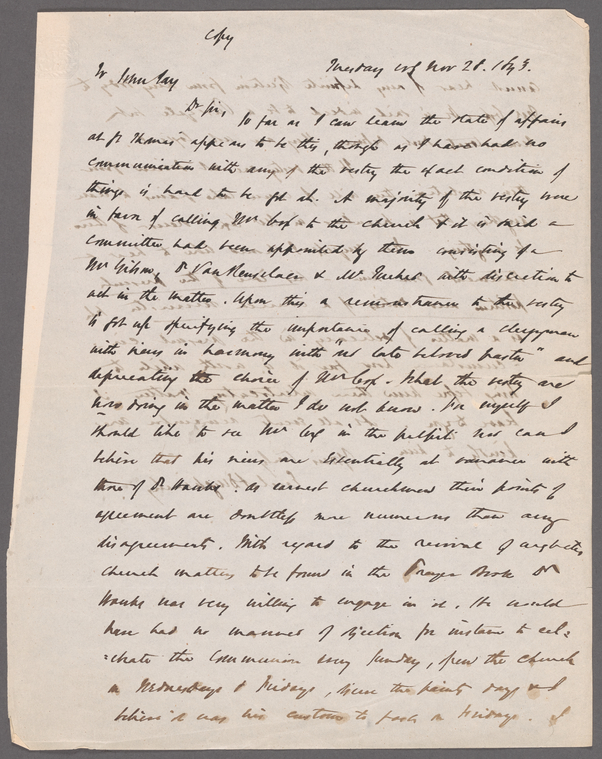 Copy
Tuesday Nov 28. 1843.
Mr John Jay
Dr Sir, So far as I can learn the state of affairs
at St Thomas' appears to be this, though as I have had no
communication with any of the vestry the exact condition of
things is hard to be got at. A majority of the vestry were
in favor of calling Mr Cox to the church & it is said a
committee had been appointed by them consisting of a
Mr Gibson, Dr Van Rensselaer & Mr Tucker with discretion to
act in the matter. Upon this a remonstrance to the vestry
is got up specifying the importance of calling a clergyman
with views in harmony with "our late beloved pastor" and
deprecating the choice of Mr Cox. What the vestry are
now doing in the matter I do not know. For myself I
should like to see Mr Cox in the pulpit nor can I
believe that his views are essentially at variance with
those of Dr Hawks: as earnest churchmen their points of
agreement are doubtless more numerous than any
disagreements. With regard to the revival of
church matters to be found in the Prayer Book Dr
Hawks was very willing to engage in it. He would
have had no manner of objection for instance to cel=
=ebrate the Communion every Sunday, open the church
on Wednesdays & Fridays, observe the saints days & I
believe it was his custom to fast on Fridays. I